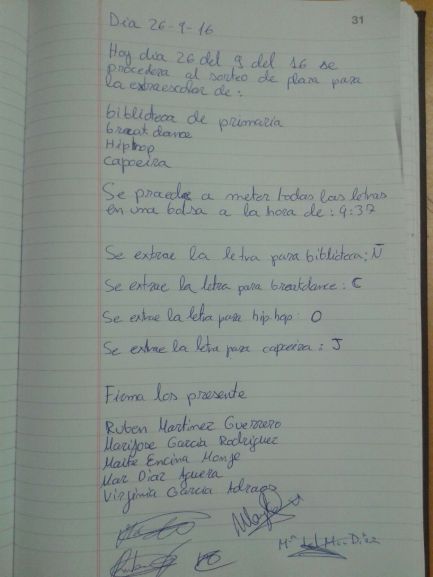 31
Dia 26-9-16
Hoy dia 26 del 9 del 16 se
procedera al sorteo de plaza para
la extraescolar de:
biblioteca de primaria
breatdance
Hiphop
capoeira
Se procede a meter todas las letras
en una bolsa a la hora de: 9:37
Se extrae la letra para biblioteca: Ñ
Se extrae la letra para breatdance: C
Se extrae la letra para hip hop: O
Se extrae la letra para capoeira: J
Firma los presente
Ruben Martinez Guerrero
Marijose Garcia Rodriguez
Maite Encina Monje
Mar Diaz Aguera
Virginia Garcia Adrago
Mª del Mar Diaz